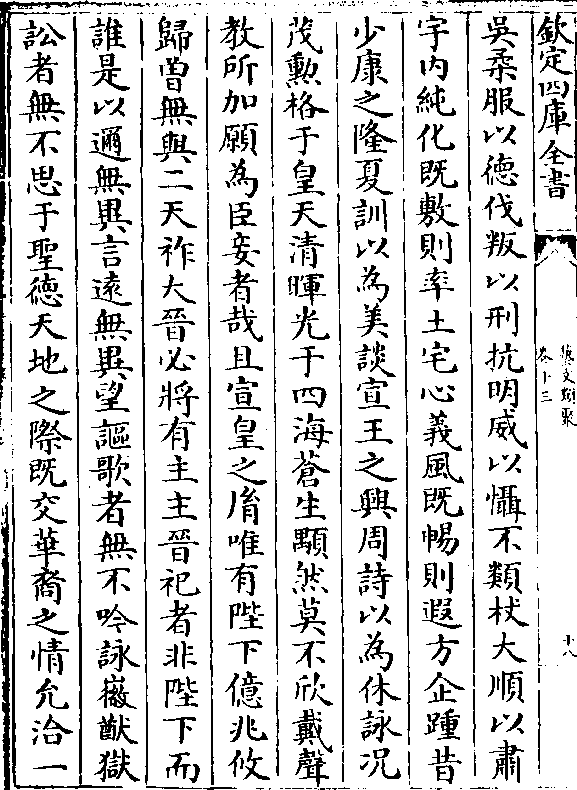 欽定四庫全書
藝文類聚
卷十三
十八
吳柔服以徳伐叛以刑抗明威以懾不類杖大順以肅
宇内純化既敷則率土宅心義風既暢則遐方企踵昔
少康之隆夏訓以為美談宣王之興周詩以為休詠况
茂勲格于皇天清暉光于四海蒼生顒然莫不欣戴聲
教所加願為臣妾者哉且宣皇之𦙍唯有陛下億兆攸
歸曽無與二天祚大晉必將有主主晉祀者非陛下而
誰是以邇無異言逺無異望謳歌者無不吟詠嶶猷獄
訟者無不思于聖徳天地之際既交華裔之情允洽一